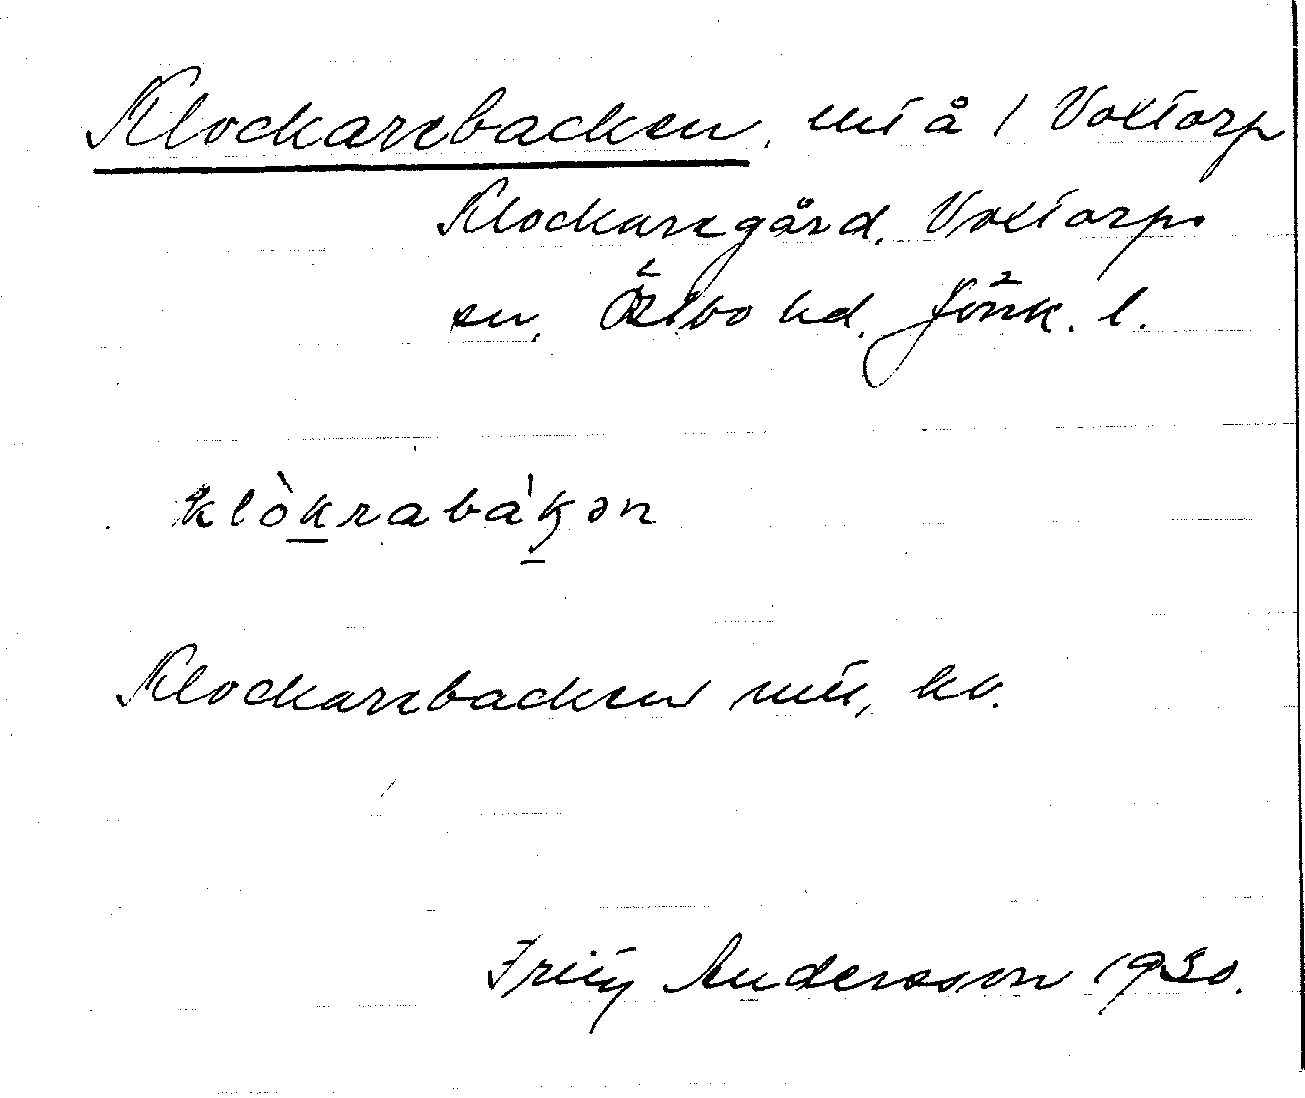 Klockarebacken, utä å / Voxtorp
Klockaregård. Voxtorps
sn. Östbo hd. Jönk. l.
klòkrabákən
Klockarebacken utä, kv.
Fritz Andersson 1930.